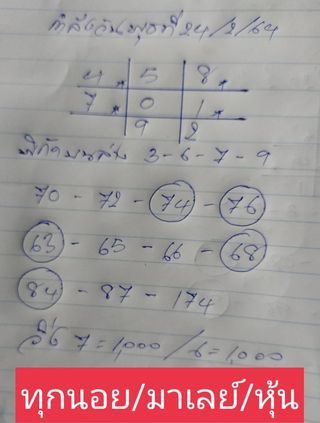 วันพุธที่ 24/2/64
4 5 8
7 0 1
9 2
3-6-7-9
70 - 72 - 74 - 76
63 - 65 - 66 - 68
84 - 87 - 174
7=1,000/6=1,000
ทุกนอย/มาเลย์/หุ้น